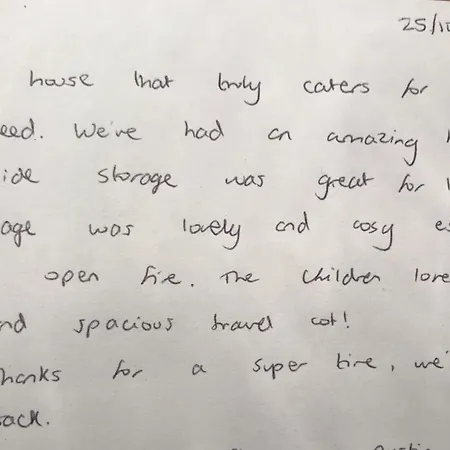 25/10
house that truly caters for
eed. We've had an amazing h
ide storage was great for
age was lovely and cosy es
open fire. The children love
nd spacious travel cot!
hanks for a super time, we'
back.